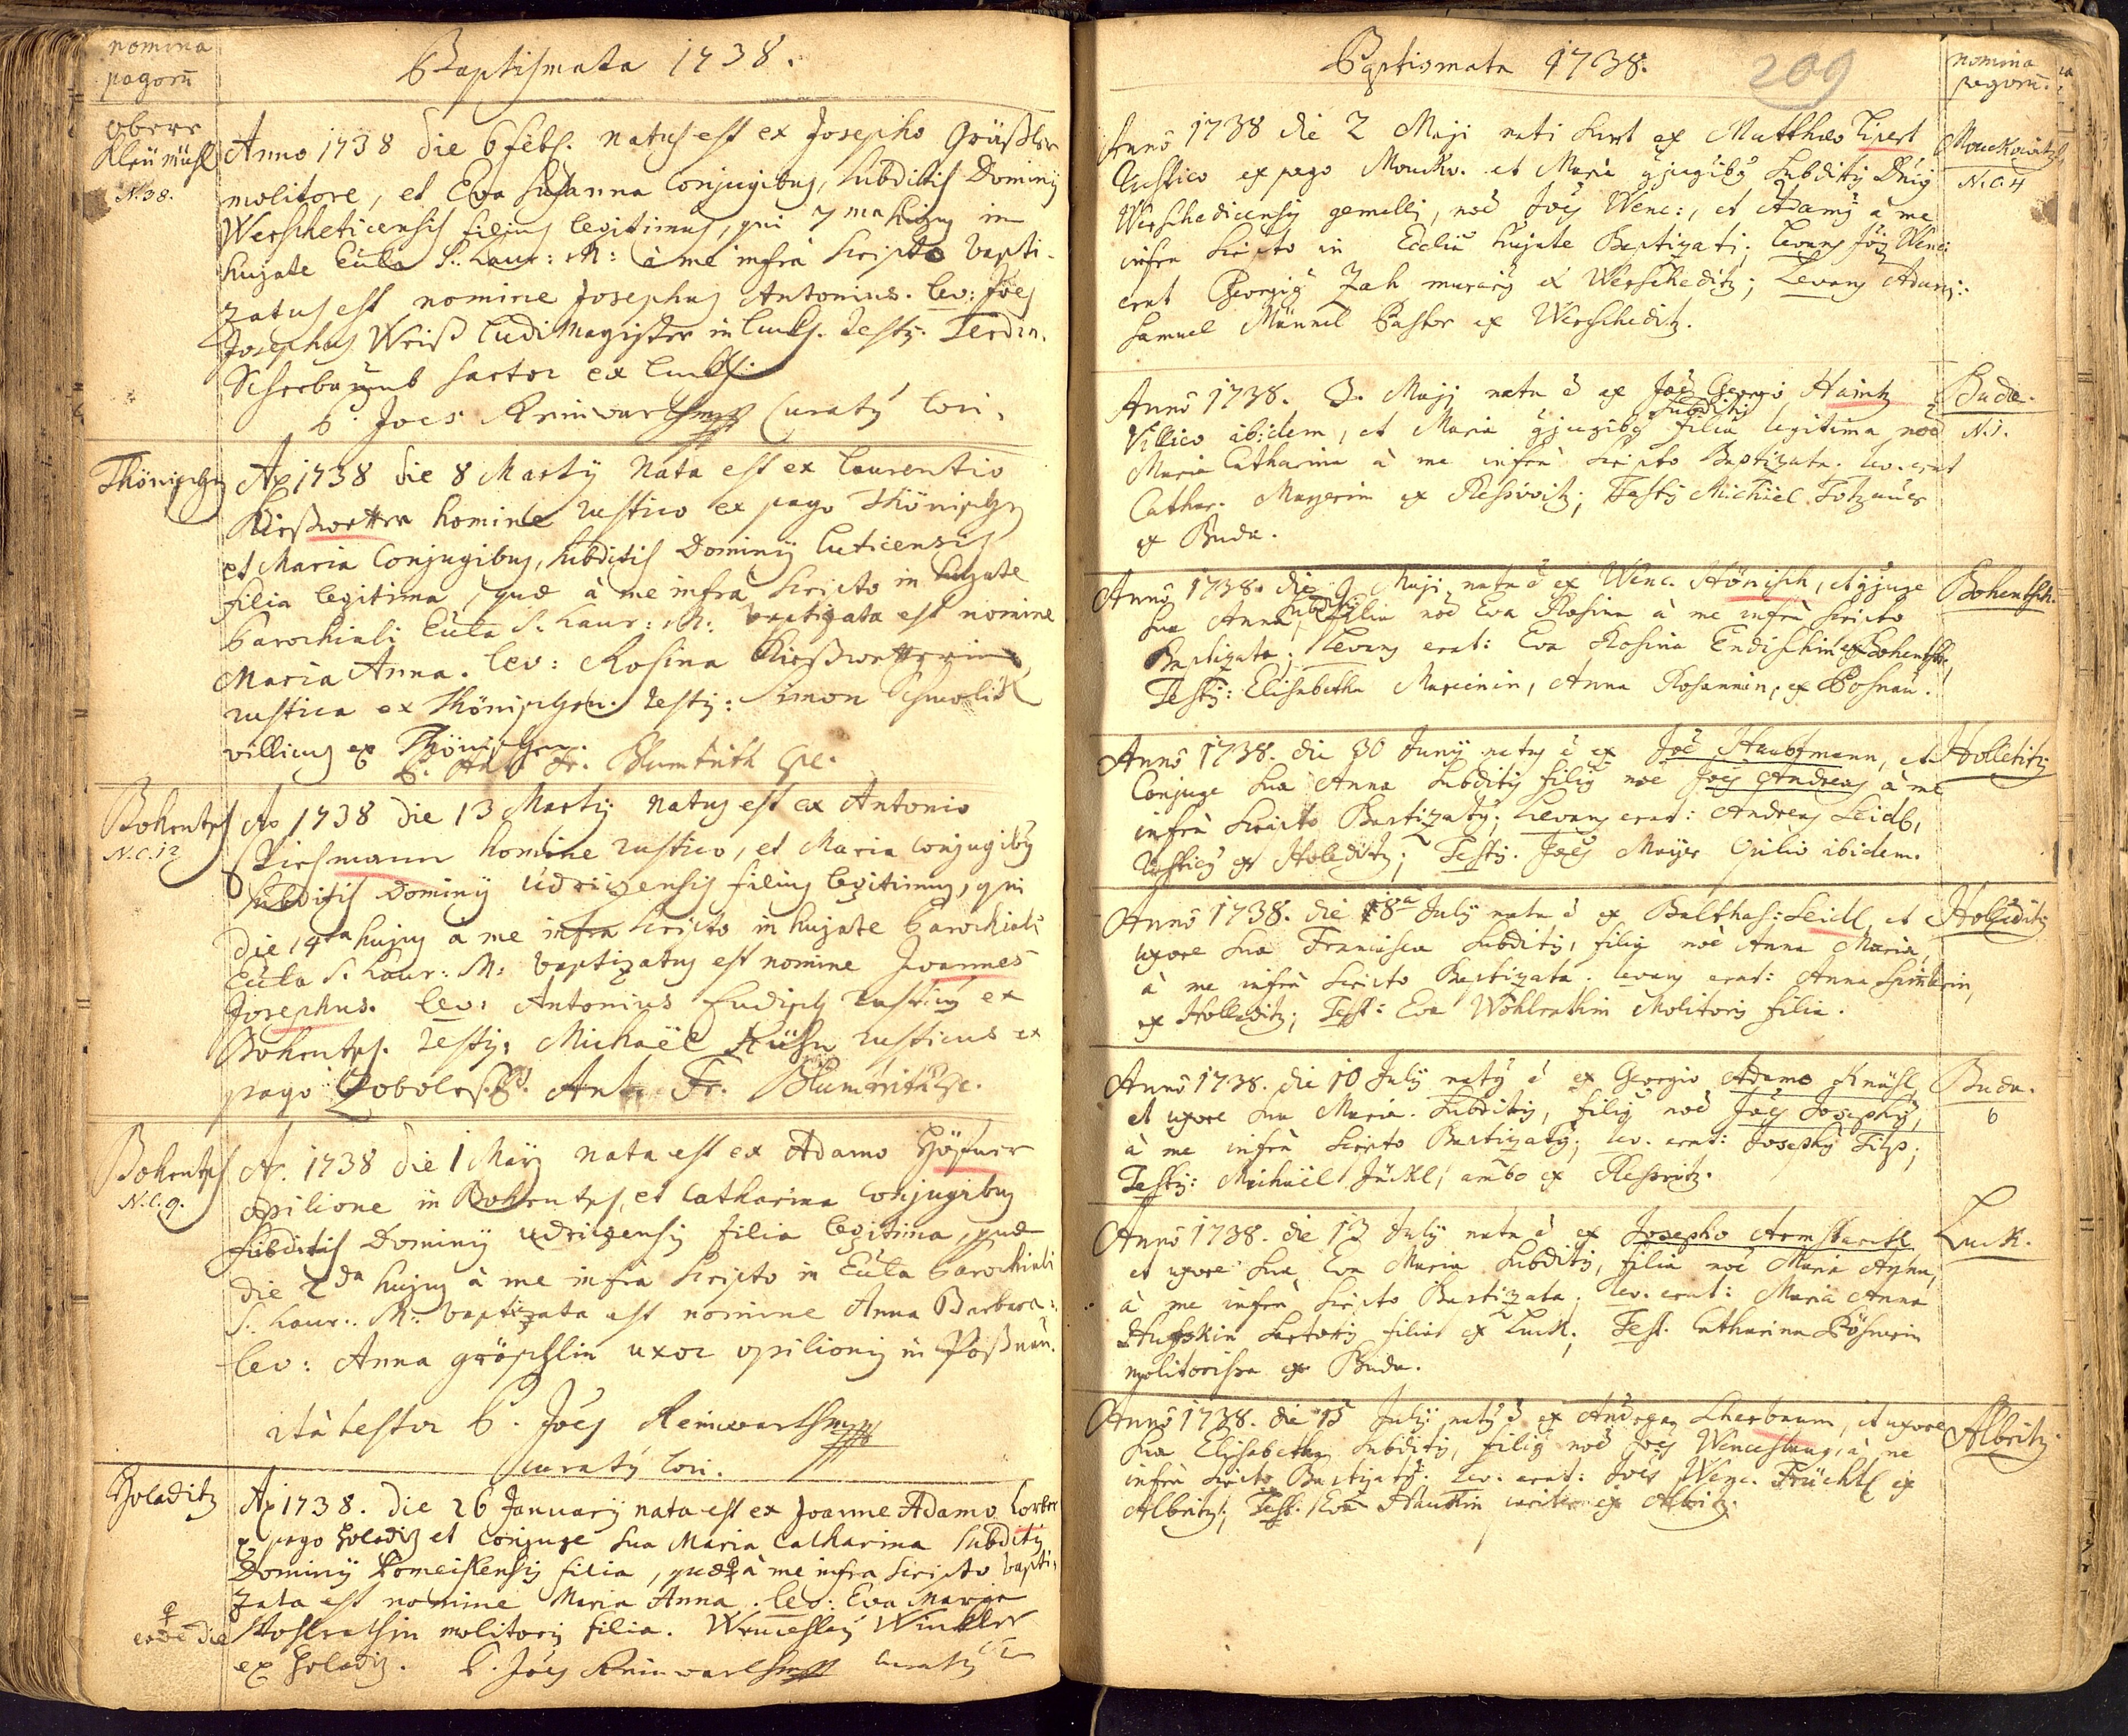 nomina
pagorũ
Baptismata 1738.
obere
Kleinmühl
N. 38.
Anno 1738 die 6 feb. natus est ex Josepho Gräßler
molitore, et Eva Susanna Conjugibus, subditis Dominij
Werscheticensis filius legitimus, qui 7ma hujus in
hujate Eccla S. Laur: M: à me infrà scripto bapti-
zatus est nomine Josephus Antonius. lev: Joes
Josephus Weiß ludimagister in Luck. testis: Ferdin.
Scherbaumb sartor ex Luck.
P. Joes Reinwarth Curatus loci.
Thönischen
Ao 1738 die 8 Martij Nata est ex Laurentio
Kießwetter homine rustico ex pago Thönischen
et Maria Conjugibus, subditis Dominij Luticensis
filia legitima, quæ à me infrà scripto in hujate
Parochiali Eccla S. Laur: M: baptizata est nomine
Maria Anna. lev: Rosina Kießwetterin
rustica ex Thönischen. testis: Simon
villicus ex Thönischen.
P. Ant. Fr.
Bohentsch
N.C. 12
Ao 1738 die 13 Martij natus est ex Antonio
homine rustico, et Maria conjugibus
subditis Dominij Udrizensis filius legitimus, qui
die 14ta hujus a me infra scripto in hujate Parochiali
Eccla S. Laur: M: baptizatus est nomine Joannes
Josephus. lev: Antonius Endisch rusticus ex
Bohentsch. testis: Michaël Kühn rusticus ex
pago Ant. Fr.
Bohentsch
N.C. 9.
A. 1738 die 1 Maij nata est ex Adamo Höfner
opilione in Bohentsch, et Catharina Conjugibus
subditis Dominij Udrizensis filia legitima, quæ
die 2da hujus à me infrà scripto in Eccla Parochiali
S. Laur: M: baptizata est nomine Anna Barbara:
lev: Anna Gröschlin uxor opilionis in Poßnau.
ità testor P. Joes Reinwarth
curatus loci.
Holaditz
Ao 1738. die 26 Januarij nata est ex Joanne Adamo Lorber
ex pago Holadiz et Conjuge sua Maria Catharina subditis
Dominij filia, quæ à me infra scripto bapti-
eadē die
zata est nomine Maria Anna. lev: Eva Maria
Wohlrathin molitoris filia. Wenceslaus Winkler
ex Holadiz. P. Joes Reinwarth curatus
Baptismata 1738.
209
nomina
pagorũ.
Anno 1738 die 2 Maji nati sunt ex Matthæo Lipert
Rustico ex pago Mouckw. et Maria gjugibus subditis Dnij
Werschedicensis gemelli, noē Joes Wenc:, et Adamus à me
infra scripto in Ecclia hujate Baptizati; levans Jois Wenc:
erat Georgius Zah murarius ex Werscheditz; Levans Adami:
Samuel Männel Pastor ex Werscheditz.
Mouckowitz
N.C. 4
Anno 1738. 3. Maji nata ē ex Joē Georgio Haintz
Villico ibidem, et Maria gjugibus subditis filia legitima noē
Maria Catharina à me infrà scripto Baptizata. lev. erat
Cathar. Mayerin ex Ressovitz; Testis Michäel
ex Buda.
Buda.
N. 1.
Anno 1738. die 9 Maji nata ē ex Wenc. Hönisch, et gjuge
sua Anna, subditis filia noē Eva Rosina à me infrà scripto
Baptizata; Levans erat: Eva Rosina Endischin ex Bohentsch,
Testis: Elisabetha Marcinin, Anna Rosannin, ex Posnau.
Bohentsch.
Anno 1738. die 30 Junij natus ē ex Joē Haubtmann, et
Conjuge sua Anna subditis filius noē Joes Andreas à me
infrà scripto Baptizatus; Levans erat: Andreas Seidl,
Rusticus ex Holeditz; Testis. Joes Maijer Opilio ibidem.
Holletitz
Anno 1738. die 8a Julij nata ē ex Balthas: Seidl et
uxore sua Francisca subditis, filia noē Anna Maria,
à me infrà scripto Baptizata. levans erat: Anna
ex Holleditz; Test: Eva Wohlrathin Molitoris filia.
Holleditz
Anno 1738. die 10 Julij natus ē ex Georgio Adamo Knähl,
et uxore sua Maria. subditis, filius noē Joes Josephus,
à me infrà scripto Baptizatus; lev. erat: Josephus Filip;
Testis: Michäel Jückl, ambo ex Ressovitz.
Buda.
6
Anno 1738. die 13 Julij nata ē ex Josepho Armstarckl
et uxore sua Eva Maria subditis, filia noē Maria Anna,
à me infrà scripto Baptizata. lev. erat: Maria Anna
sartoris filia ex Luck; Test. Catharina Pösnerin
molitorissa ex Buda.
Luck.
Anno 1738. die 15 Julij natus ē ex Andrea Scherbaum, et uxore
sua Elisabetha subditis, filius noē Joes Wenceslaus, à me
infrà scripto Baptizatus. lev. erat: Joes Wenc. Früchtl ex
Albritz; Test. Eva ex Albritz.
Albritz